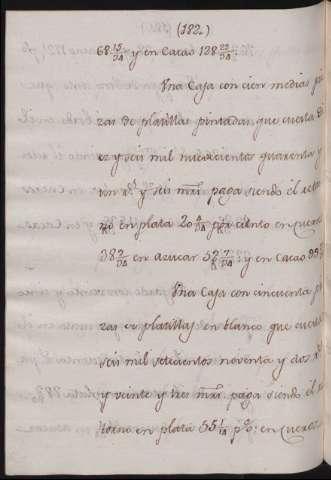 (182.)
68 15/34 y en Cacao 128 22/34:
Una Caja con cien medias
zas de platillas pintadas que cuesta
ez y seis mil nuevecientos quarenta y
un rs. y seis mrs. paga siendo el retor
no en plata 20 por ciento en Cueros
38 2/34 en azucar 52 7/34: y en Cacao
Una Caja con cincuenta
zas de platillas en blanco que cuesta
seis mil setecientos noventa y dos rs.
y veinte y tres mrs. paga siendo el re
torno en plata 55 1/34 p%: en Cueros